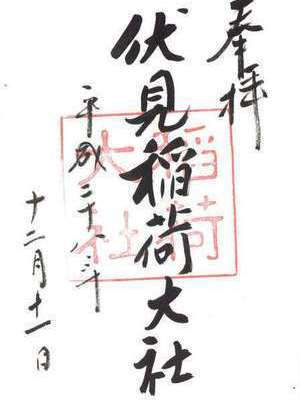 奉拝
伏見稲荷大社
稲荷
大社
平成二十八年
十二月十一日